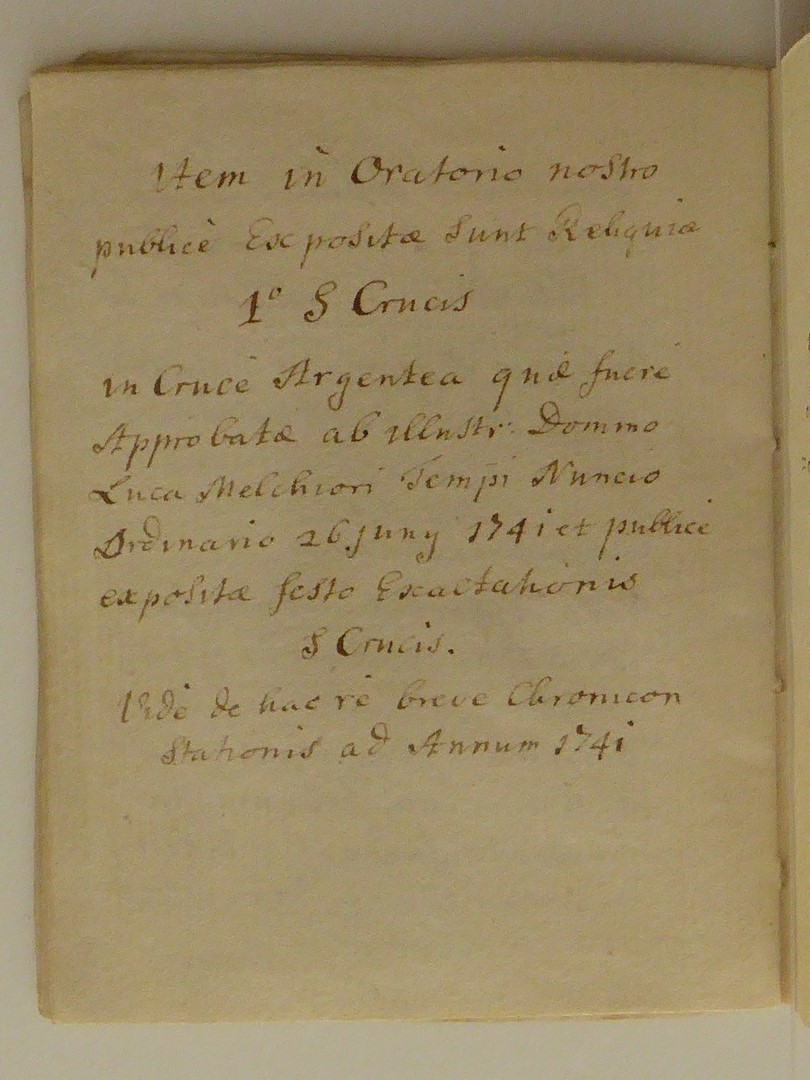 Item in Oratorio nostro
publicè Expositæ sunt Reliquiæ
1º S Crucis
in Cruce Argentea quæ fuere
Approbatæ ab illustr: Domino
Luca Melchiori Tempi Nuncio
Ordinario 26 Juny 1741 et publice
expositæ festo Exaltationis
S Crucis.
Vide de hac re breve Chronicon
Stationis ad Annum 1741